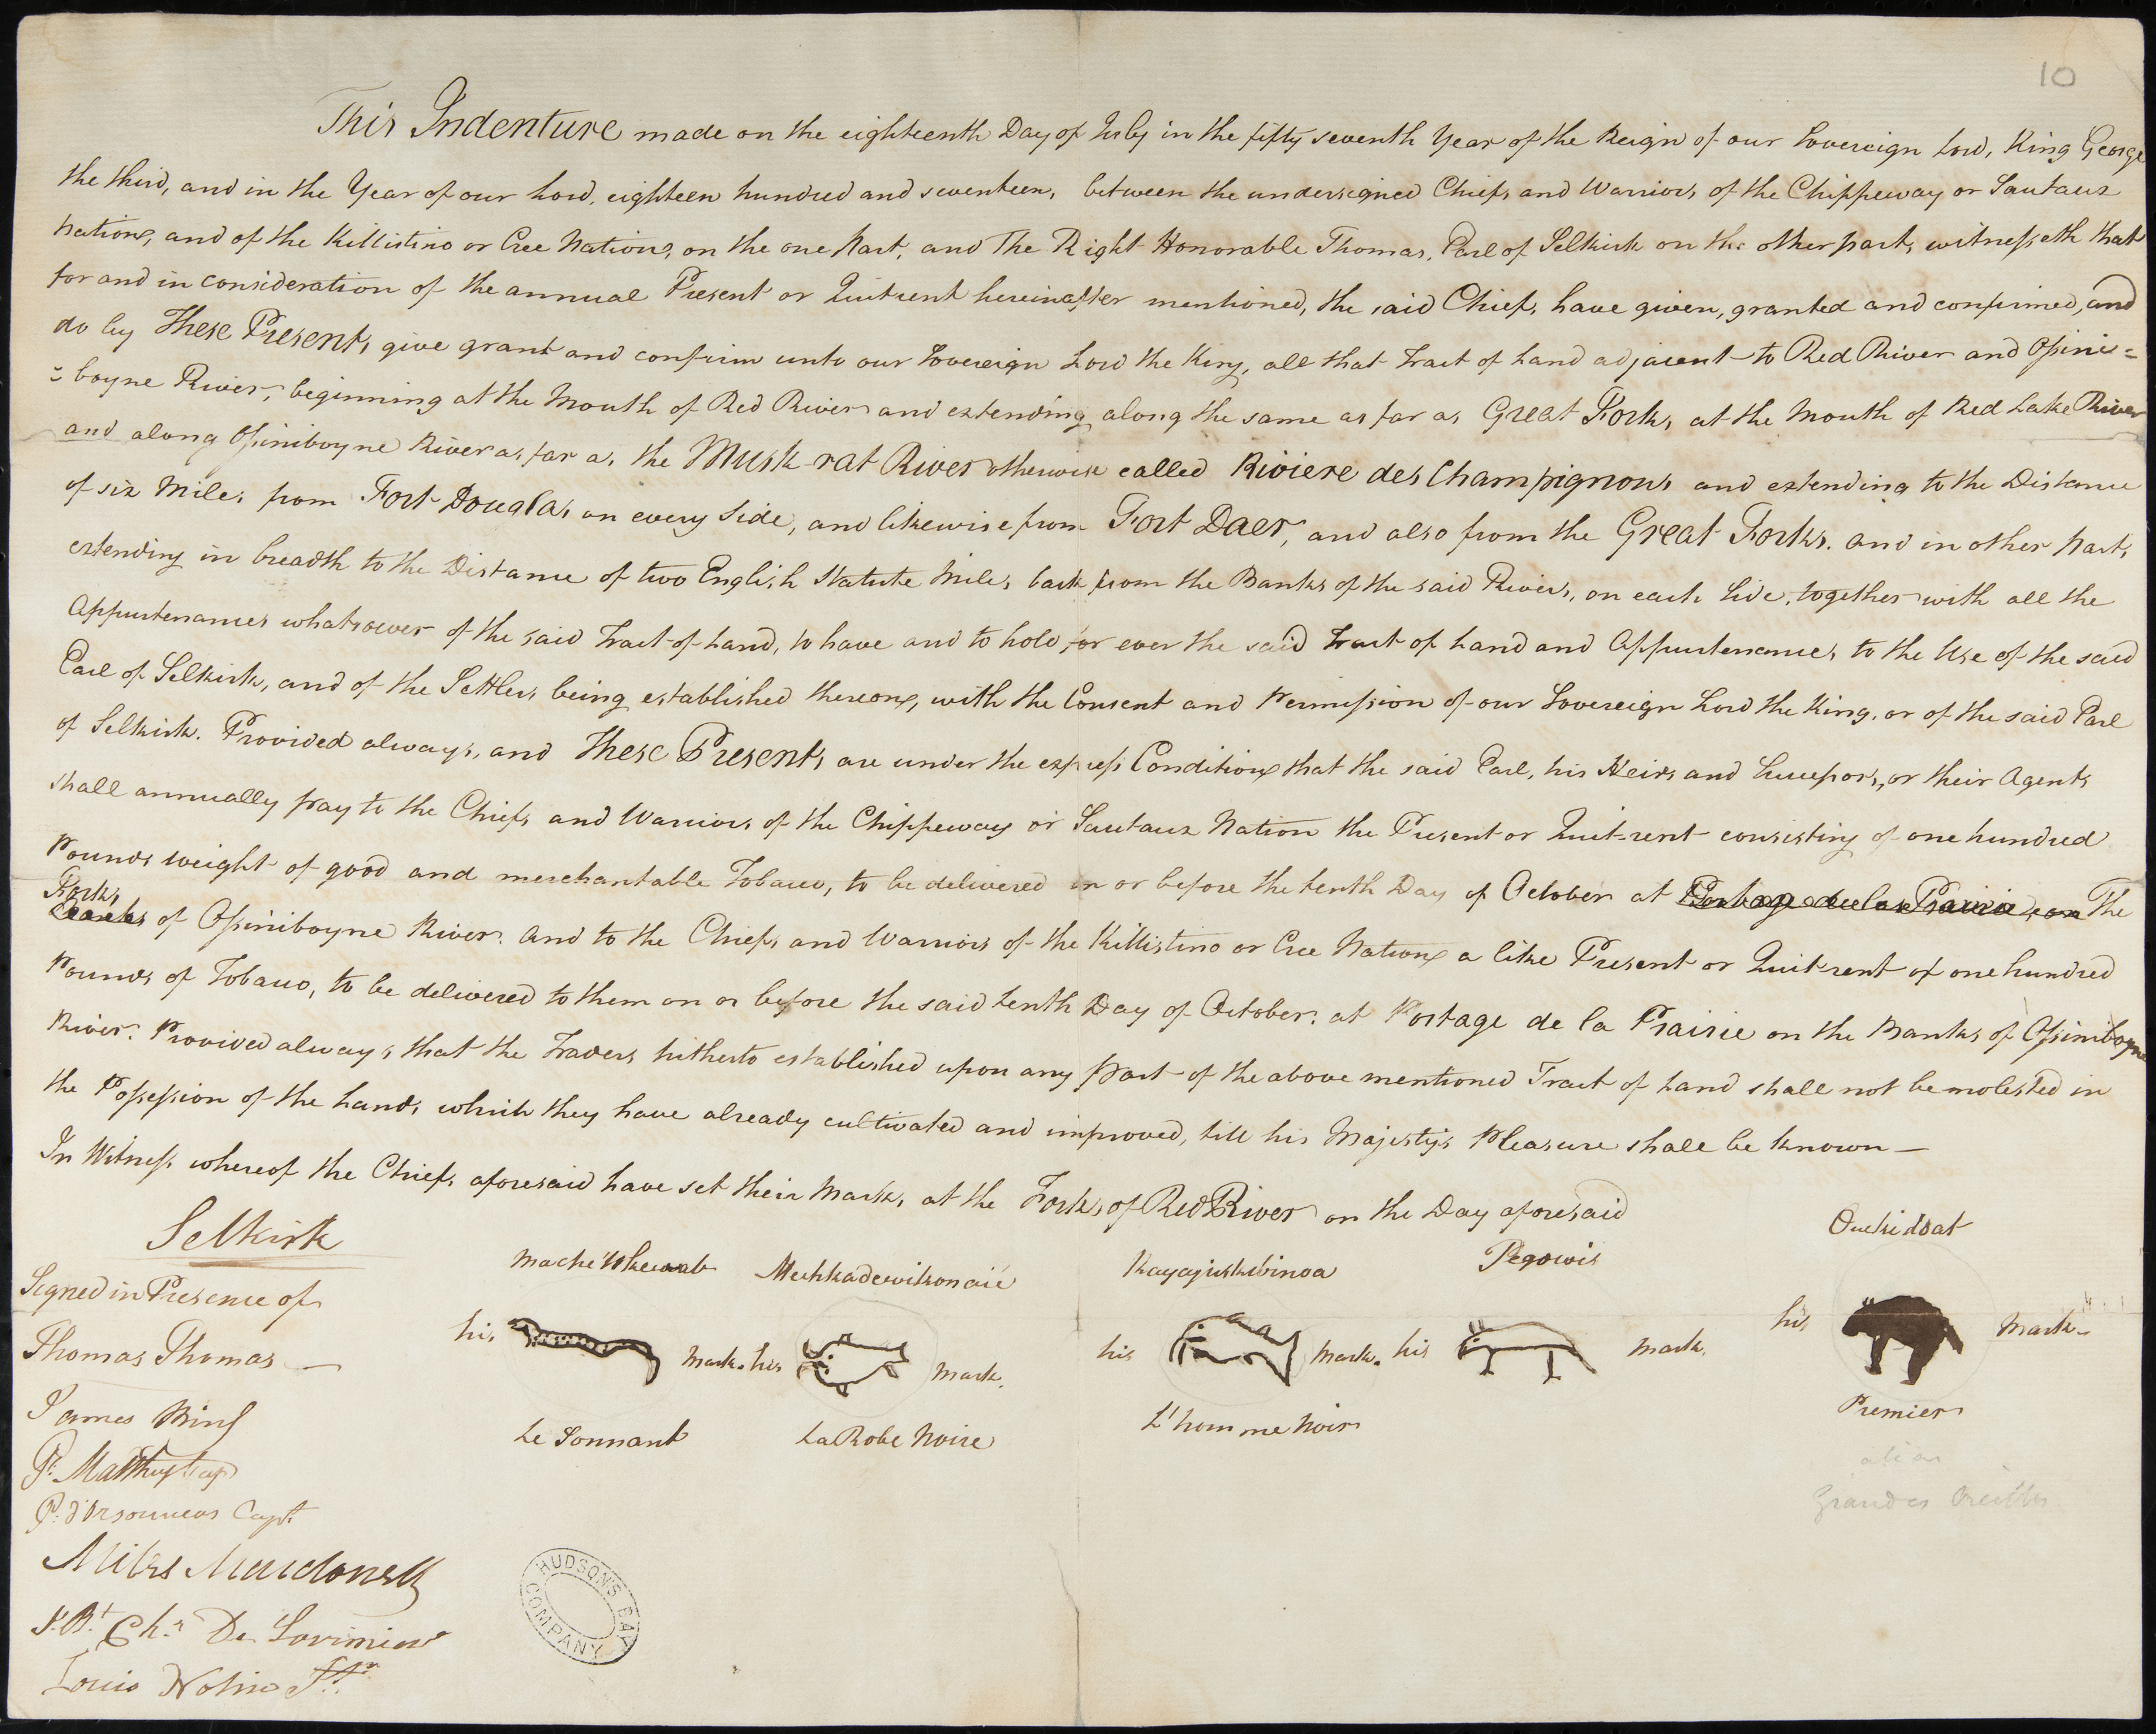 10
This Indenture made on the eighteenth Day of July in the fifty seventh Year of the Reign of our Sovereign Lord, King George
the third, and in the Year of our Lord, eighteen hundred and seventeen, between the undersigned Chiefs and Warriors of the Chippeway or Sautaux
Nation, and of the Killistino or Cree Nation, on the one Part, and The Right Honorable Thomas, Earl of Selkirk on the other part, witnesseth that
for and in consideration of the annual Present or Quitrent hereinafter mentioned, the said Chiefs have given, granted and confirmed, and
do by These Presents give grant and confirm unto our Sovereign Lord the King, all that Tract of Land adjacent to Red River and Ossini=
=boyne River, beginning at the Mouth of Red River and extending along the same as far as Great Forks at the Mouth of Red Lake River
and along Ossiniboyne River as far as the Musk-rat River otherwise called Riviere des Champignons and extending to the Distance
of six Miles from Fort Douglas on every Side, and likewise from Fort Daer, and also from the Great Forks. and in other Parts
extending in breadth to the Distance of two English Statute Miles back from the Banks of the said Rivers, on each Side, together with all the
Appurtenances whatsoever of the said Tract of Land, to have and to hold for ever the said Tract of Land and Appurtenances to the Use of the said
Earl of Selkirk, and of the Settlers being established thereon, with the Consent and Permission of our Sovereign Lord the King, or of the said Earl
of Selkirk. Provided always, and these Presents are under the express Condition that the said Earl, his Heirs and Successors, or their Agents
shall annually pay to the Chiefs and Warriors of the Chippeway or Sautaux Nation the Present or Quit-rent consisting of one hundred
Pounds weight of good and merchantable Tobacco, to be delivered on or before the tenth Day of October at Portage de la Prairie, on The
Forks
Banks of Ossiniboyne River. And to the Chiefs and Warriors of the Killistino or Cree Nation a like Present or Quit-rent of one hundred
Pounds of Tobacco, to be delivered to them on or before the said tenth Day of October, at Portage de la Prairie on the Banks of Ossiniboyne
River. Provided always, that the Traders hitherto established upon any Part of the above mentioned Tract of Land shall not be molested in
the Possession of the Lands which they have already cultivated and improved, till his Majesty's Pleasure shall be known —
In Witness whereof the Chiefs aforesaid have set their Marks, at the Forks of Red River on the Day aforesaid
Selkirk
Signed in Presence of
Thomas Thomas —
James Bird
Fr. Matthey Cap
P. d'Orsonnens Capt.
Miles Macdonell
J. Bt. Chr. De Lorimier
Louis Nolin Itr.
Mache Wheseab
his mark.
Le Sonnant
Mechkadewikonaie
his mark.
La Robe Noire
Kayajieskebinoa
his mark.
L'homme Noir
Pegowis
his mark.
Ouckidoat
his mark
Premier
alias
Grandes Oreilles
HUDSON'S BAY COMPANY